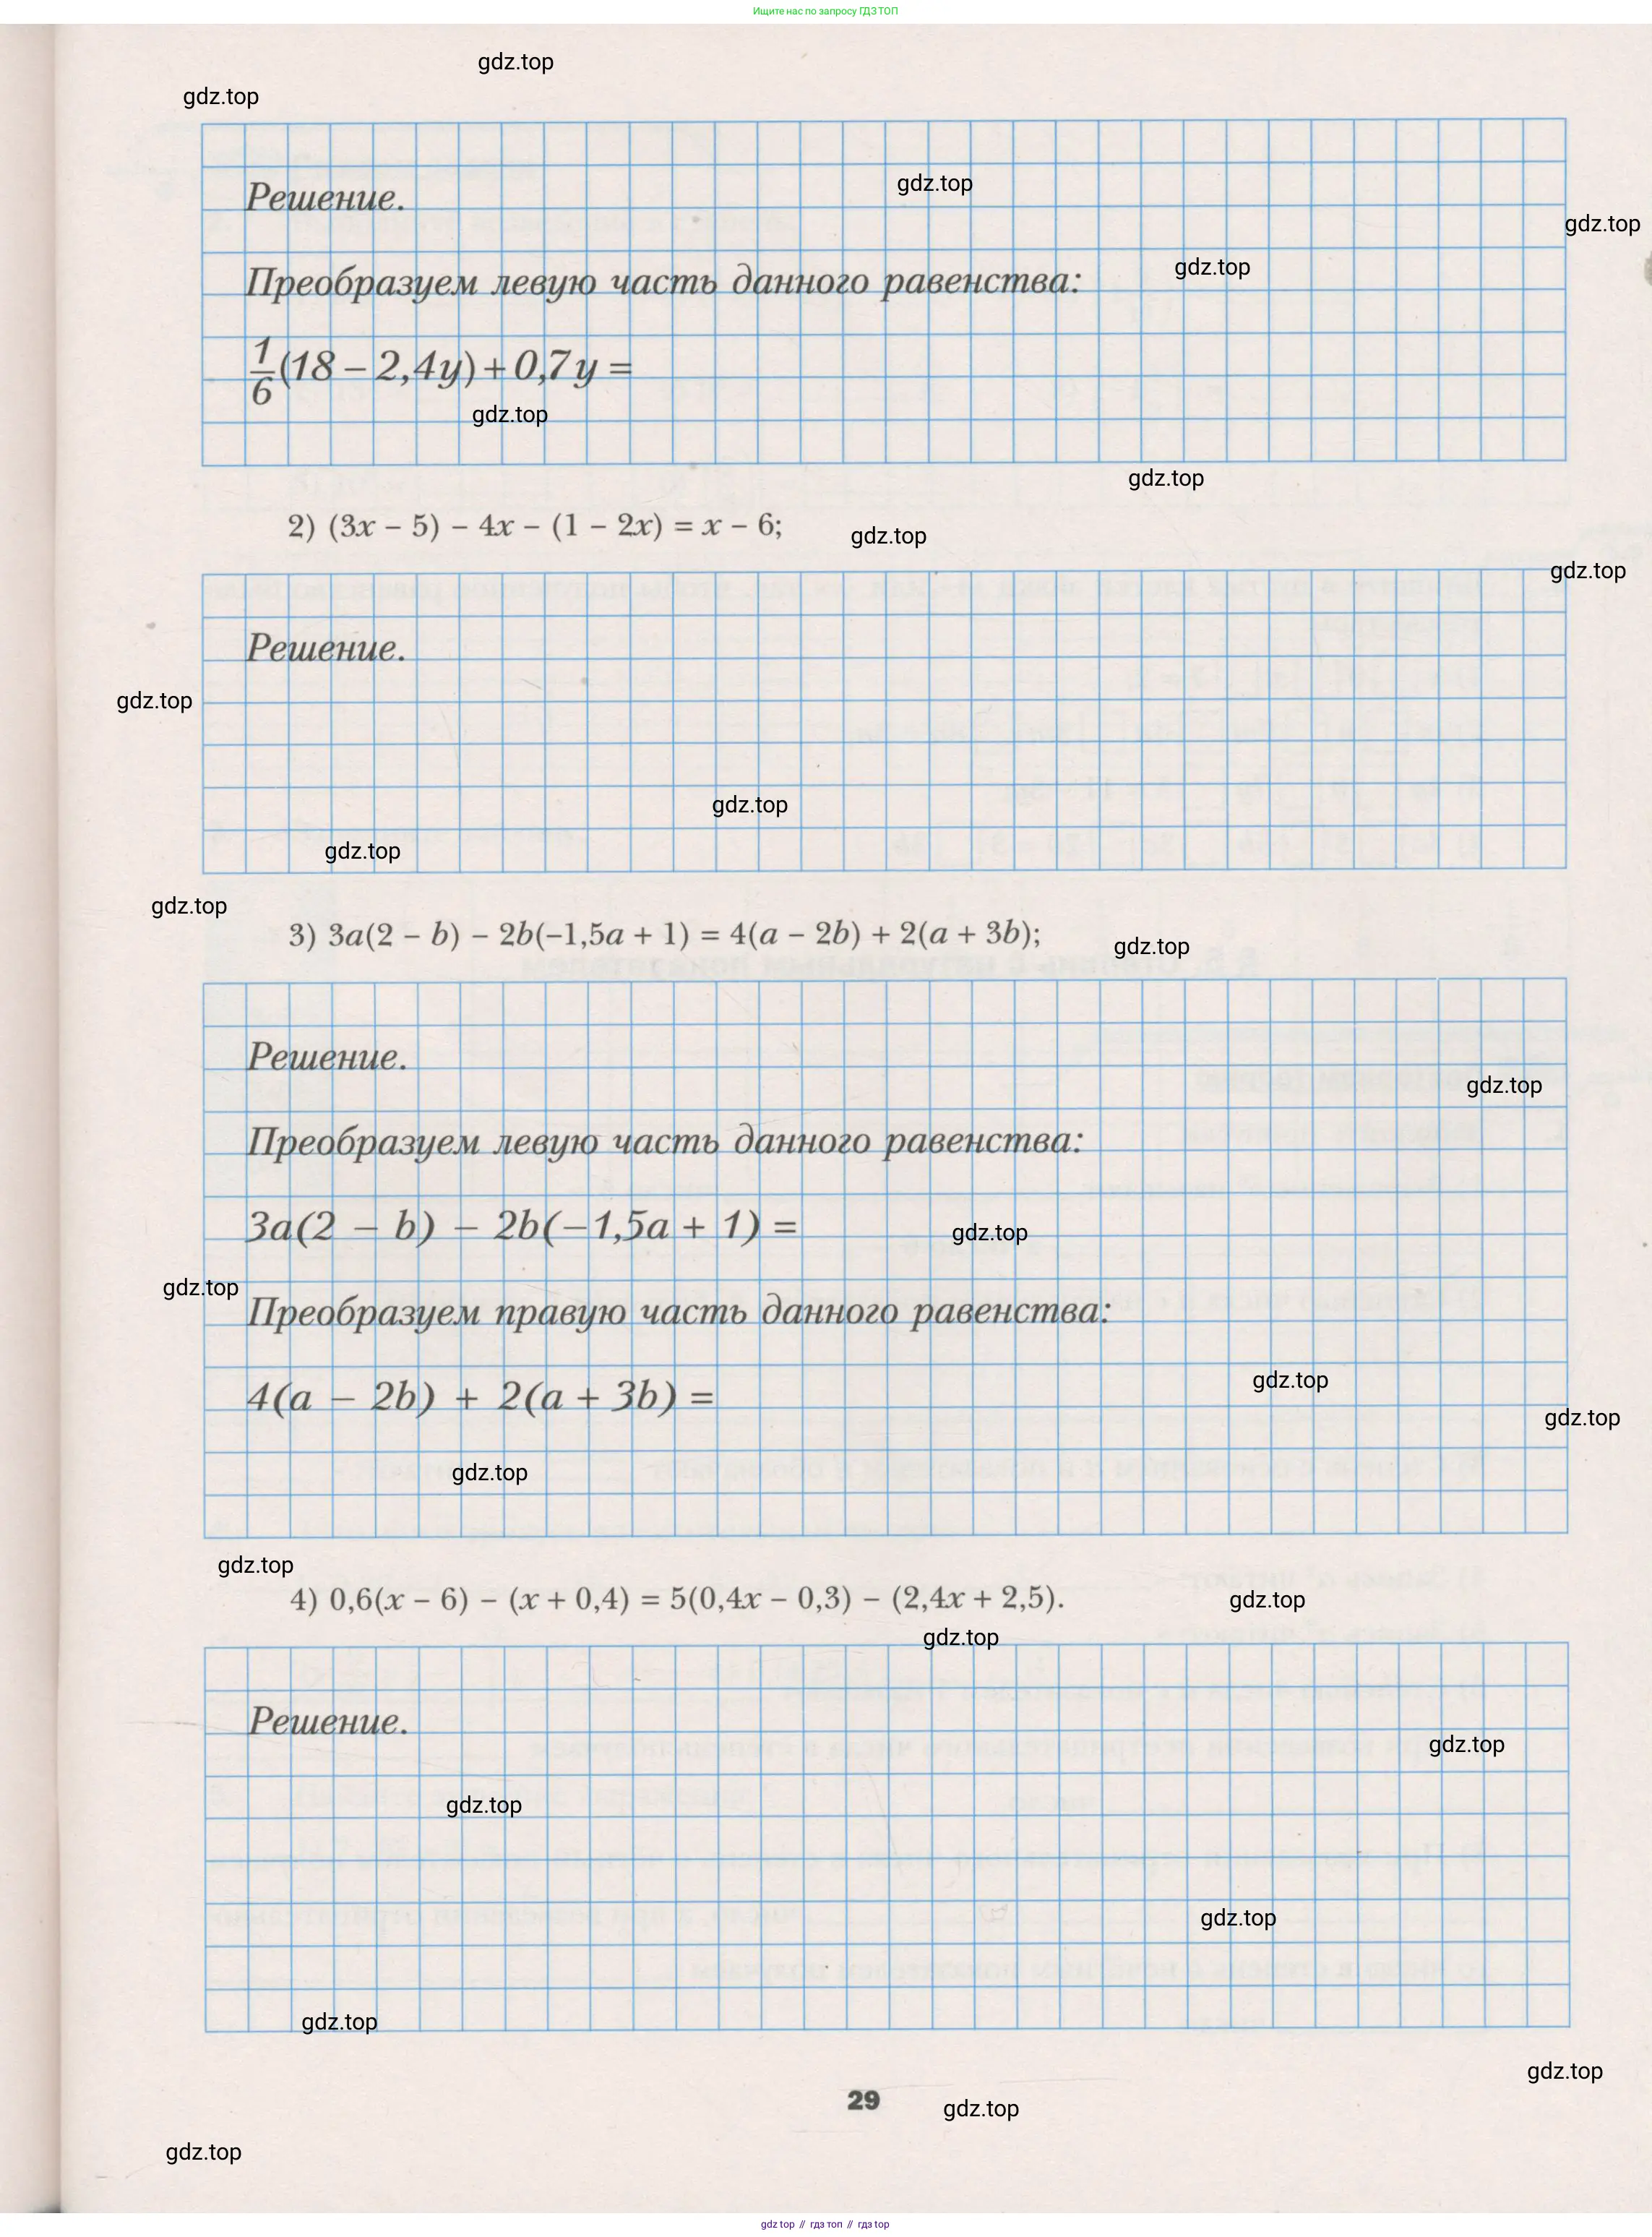 Ищите нас по запросу ГДЗ ТОП
gdz.top
gdz.top
Решение.
gdz.top
gdz.top
Преобразуем левую часть данного равенства:
gdz.top
1/6(18 – 2,4y) + 0,7y =
gdz.top
gdz.top
2) (3x – 5) – 4x – (1 – 2x) = x – 6;
gdz.top
gdz.top
Решение.
gdz.top
gdz.top
gdz.top
gdz.top
3) 3a(2 – b) – 2b(–1,5a + 1) = 4(a – 2b) + 2(a + 3b);
gdz.top
Решение.
gdz.top
Преобразуем левую часть данного равенства:
3a(2 – b) – 2b(–1,5a + 1) =
gdz.top
gdz.top
Преобразуем правую часть данного равенства:
4(a – 2b) + 2(a + 3b) =
gdz.top
gdz.top
gdz.top
gdz.top
4) 0,6(x – 6) – (x + 0,4) = 5(0,4x – 0,3) – (2,4x + 2,5).
gdz.top
gdz.top
Решение.
gdz.top
gdz.top
gdz.top
gdz.top
gdz.top
29
gdz.top
gdz.top
gdz.top // гдз топ // гдз top